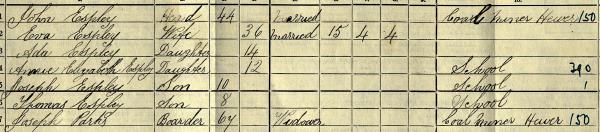 John Espley Head 44 Married Coal Miner Hewer 150
2 Eva Espley Wife 36 Married 15 4 4
3 Ada Espley Daughter 14
4 Annie Elizabeth Espley Daughter 12 School 390
5 Joseph Espley Son 10 School 1
6 Thomas Espley Son 8 School
7 Joseph Parks Boarder 67 Widower Coal Miner Hewer 150